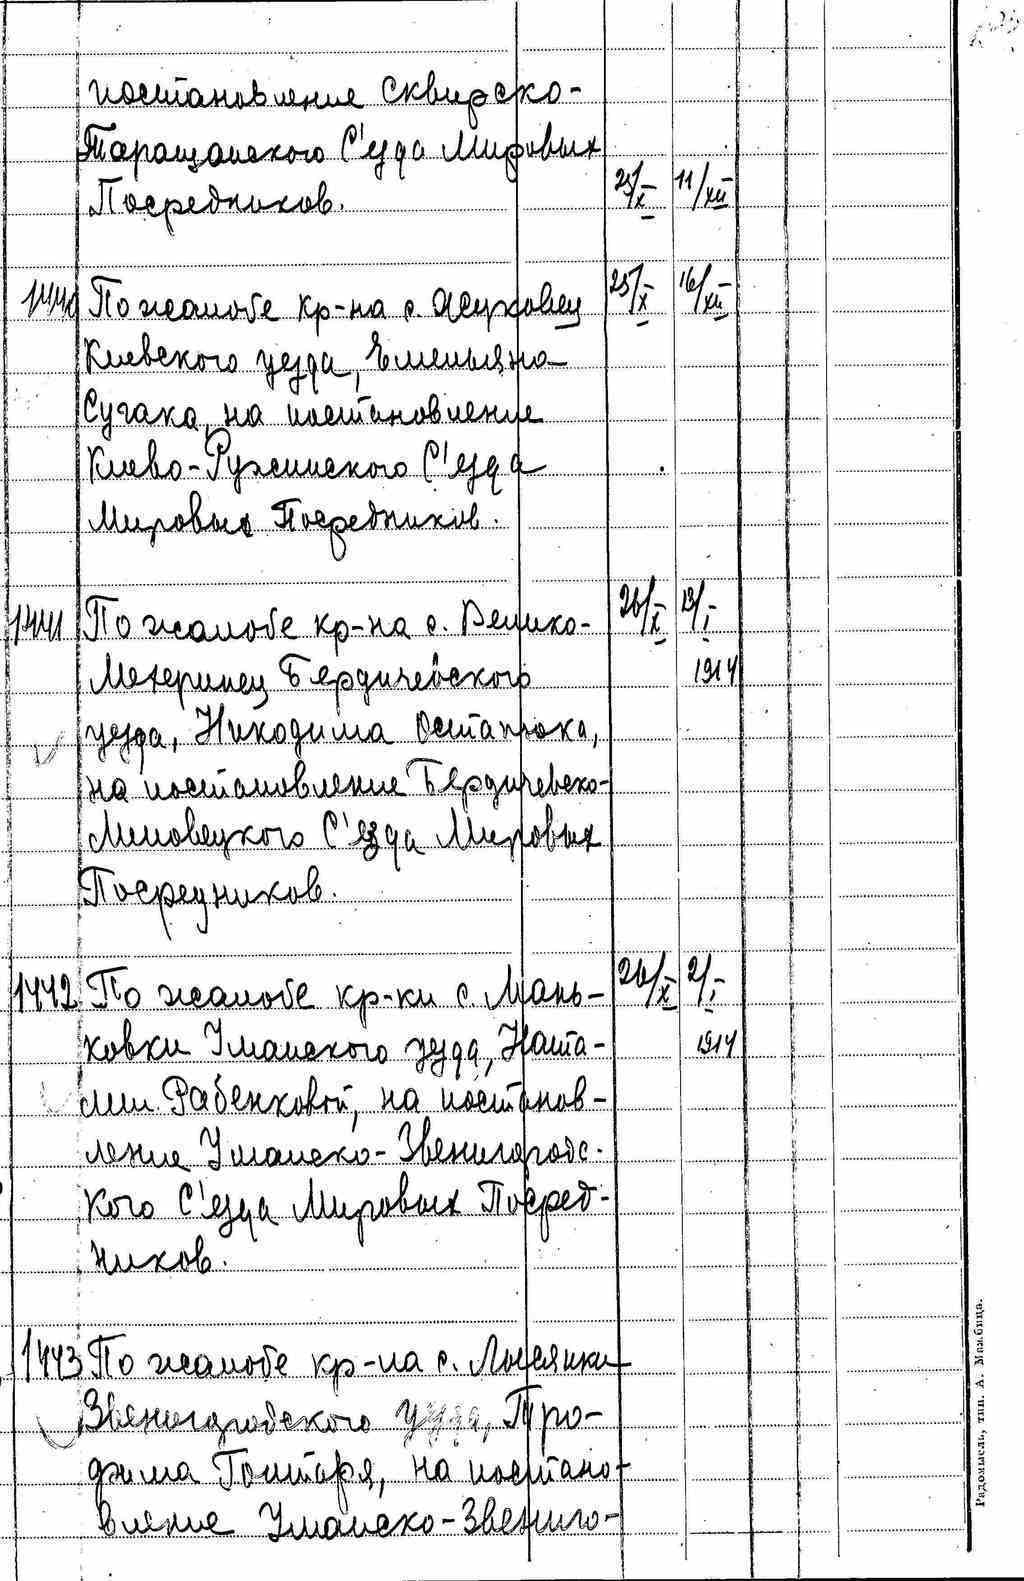 постановление Сквирско-
Таращанского С'езда Мировых
Посредников. 25/X 11/XII
1440 По жалобе кр-на с. Ясуховец 25/X 16/XII
Киевского уезда, Емельяна
Сугака, на постановление
Киево-Ружинского С'езда
Мировых Посредников.
1441 По жалобе кр-на с. Велико- 26/X 13/I
Мезеринец Бердичевского 1914
уезда, Никодима Остапюка,
на постановление Бердичевско-
Липовецкого С'езда Мировых
Посредников.
1442 По жалобе кр-ки с. Мань- 26/X 2/I
ковки Уманского уезда, Ната- 1914
лии Рабенковой, на постанов-
ление Уманско-Звенигородс-
кого С'езда Мировых Посред-
ников.
1443 По жалобе кр-на с. Лысянки
Звенигородского уезда, Тро-
фима Гонтаря, на постано-
вление Уманско-Звениго-
Радомысль, тип. А. Межбица.